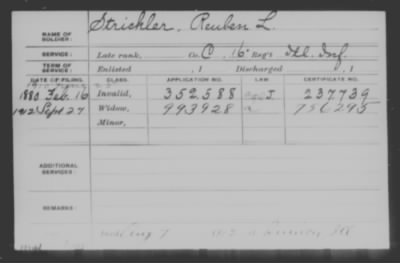 NAME OF SOLDIER: Strickler, Reuben L.
SERVICE: Late rank, Co. C, 16" Reg't Ill. Inf.
TERM OF SERVICE: Enlisted , 1 Discharged , 1
DATE OF FILING. CLASS. APPLICATION NO. LAW. CERTIFICATE NO.
1880 Feb. 16 Invalid, 352.588 237.739
1912 Sept 27 Widow, 993928 756295
Minor,
ADDITIONAL SERVICES:
REMARKS: